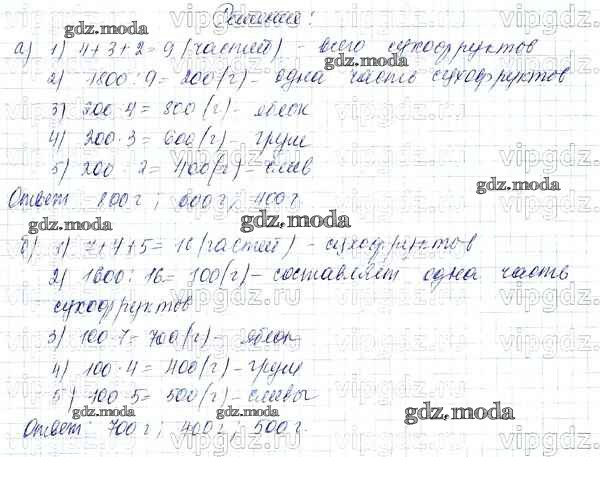 Решение:
а) 1) 4+3+2=9 (частей) - всего сухофруктов
2) 1800:9=200(г)- одна часть сухофруктов
3) 200·4=800(г)- яблок
4) 200·3=600(г)- груш
5) 200·2=400(г)- слив
Ответ: 800г; 600г; 400г.
б) 1) 7+4+5=16(частей) - сухофруктов
2) 1600:16=100(г)- составляет одна часть
сухофруктов
3) 100·7=700(г)- яблок
4) 100·4=400(г)- груш
5) 100·5=500(г)- сливы
Ответ: 700г; 400г; 500г.
gdz.moda
gdz.moda
gdz.moda
gdz.moda
gdz.moda
gdz.moda
gdz.moda
gdz.moda
gdz.moda
vipgdz.ru